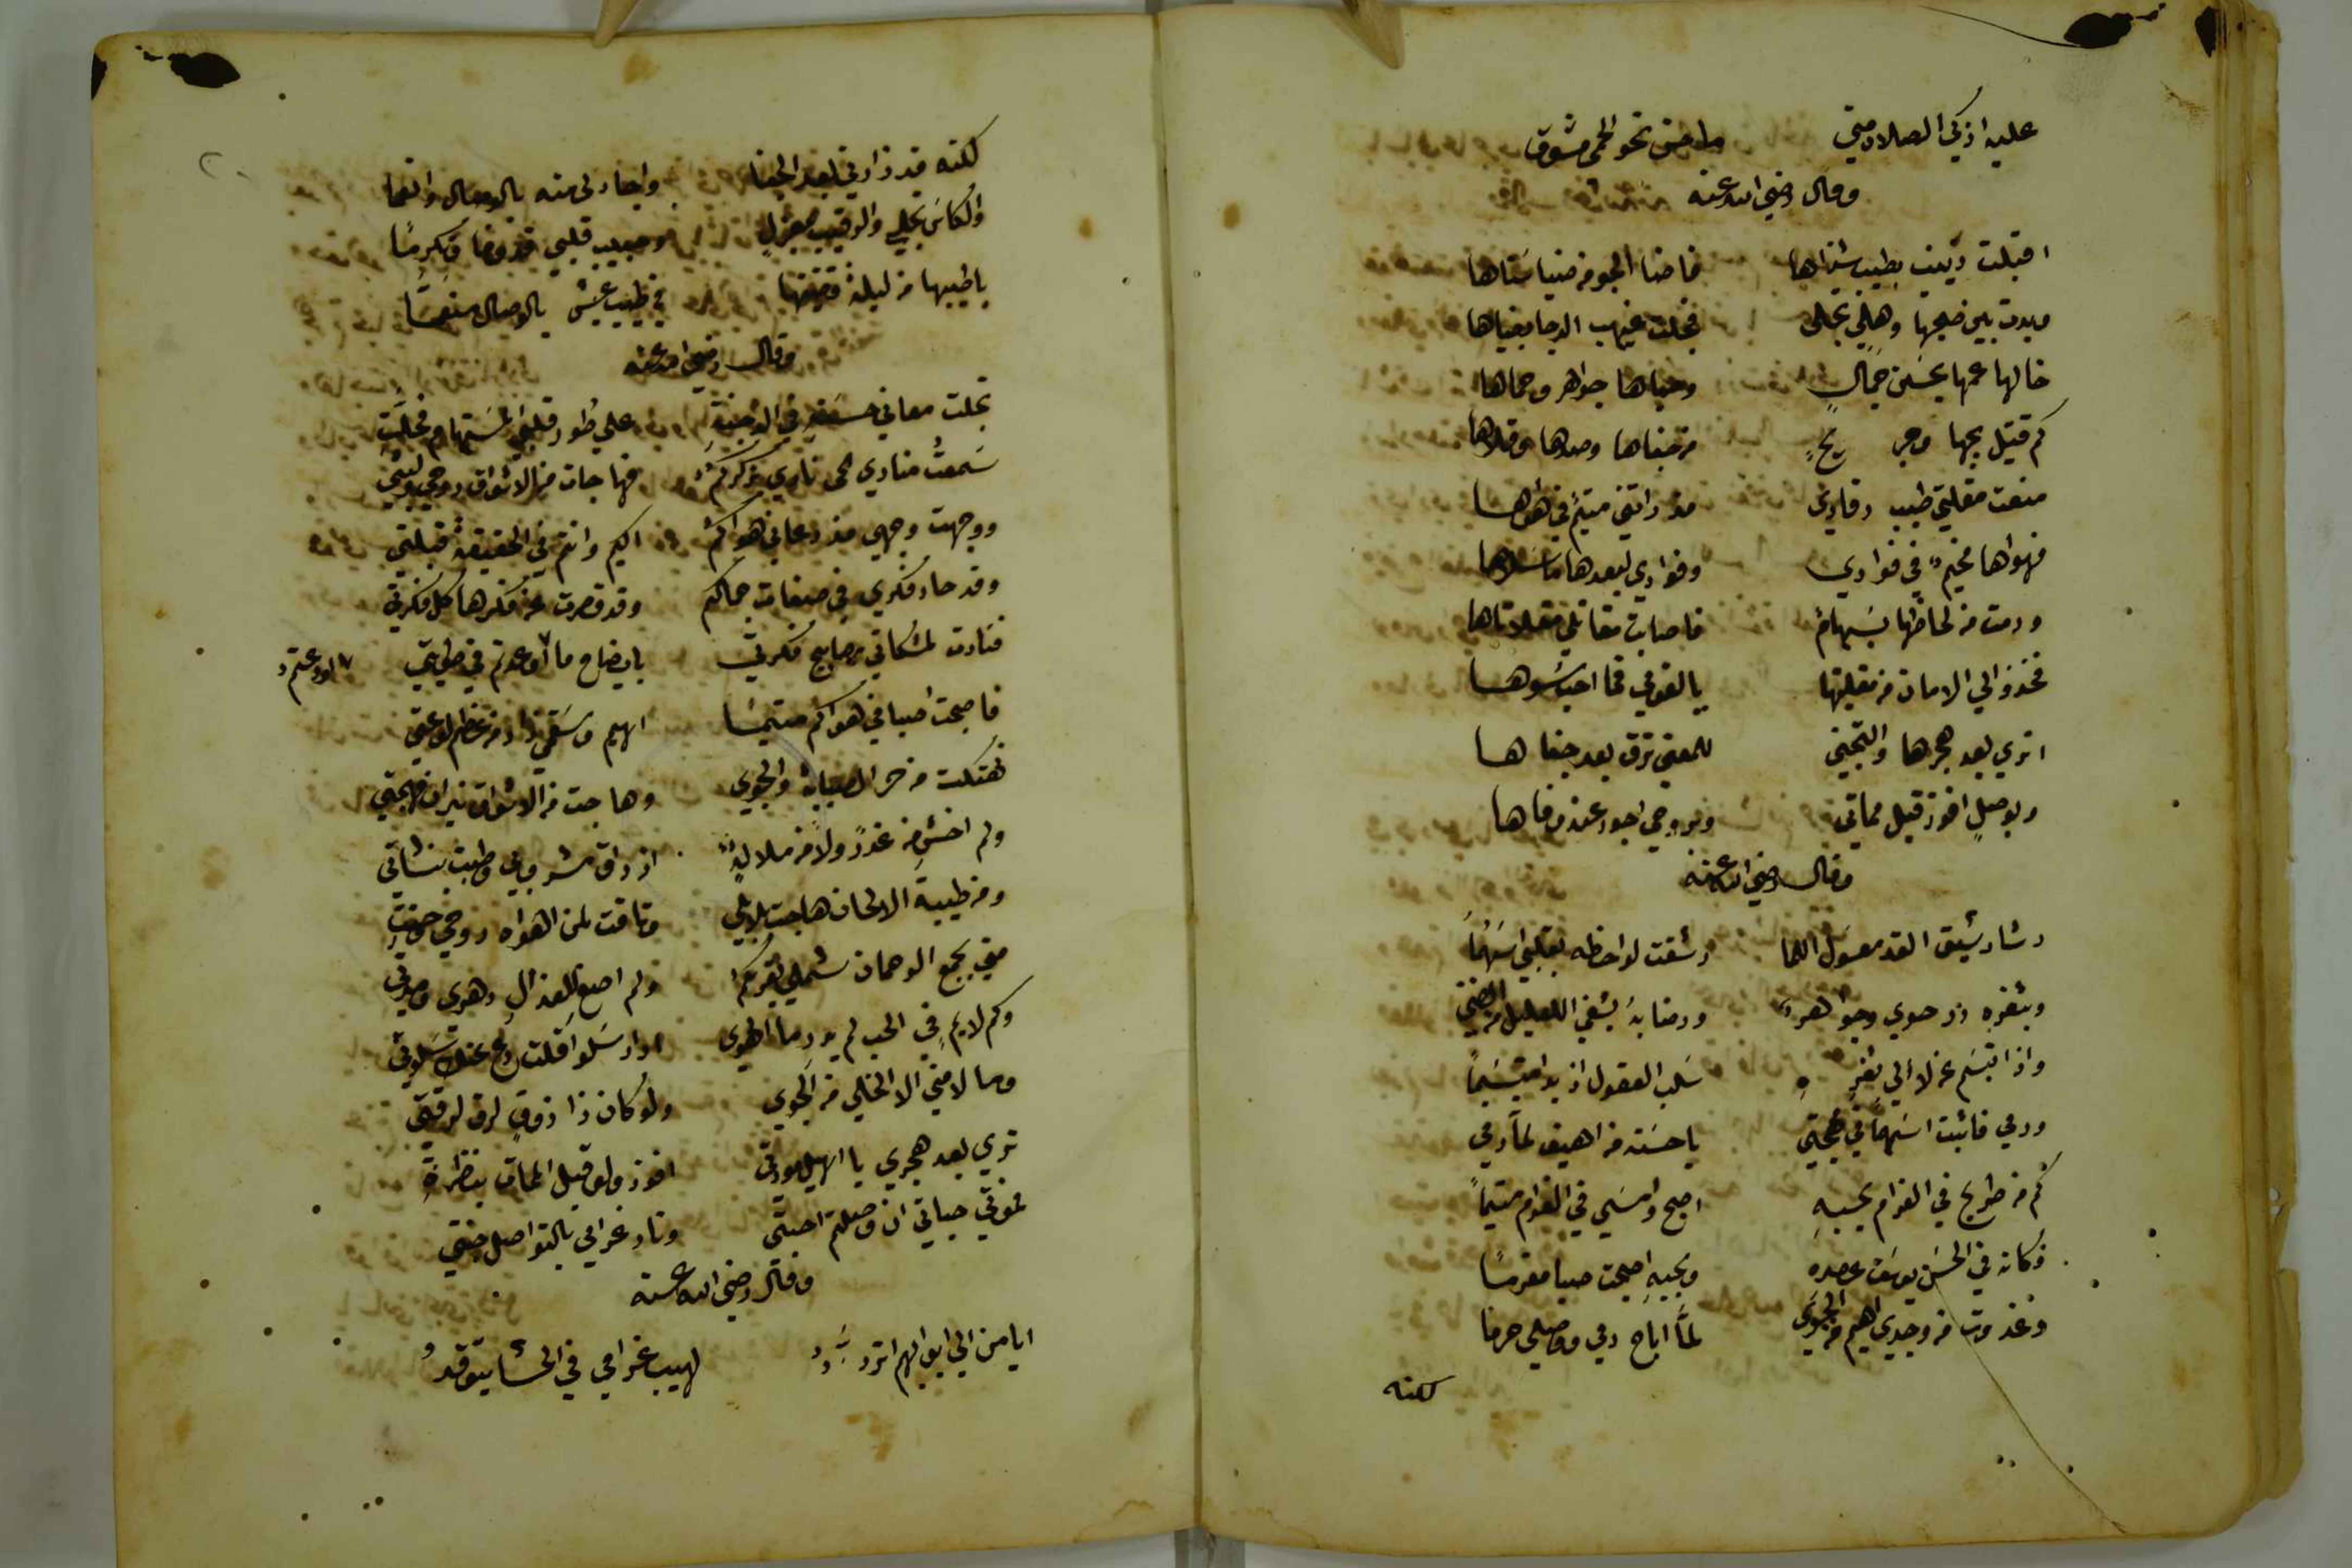 عليه اذكي الصلاة مني ما حن نحو الحمى مشوق
وقال رضي الله عنه
اقبلت زينب بطيب شذاها فاضا الجو من ضيا سناها
وبدت بين صحبها وهي تجلى فجلت غيهب الدجا بضياها
خالها عمها بحسن جمال وحباها جواهر وحماها
كم قتيل بحبها وجريح من جفاها وصدها وقلاها
منعت مقلتي طيب رقادي مذ راتني متيم في هواها
فهواها مخيم في فوادي وفوادي لبعدها ما سلاها
ورمت من لحاظها بسهام فاصابت مقاتلي مقلاتاها
فخذوا لي الامان من مقلتيها يا لقومي فما احب سواها
اتري بعد هجرها والتجني للمعنى ترق بعد جفاها
وبوصل افوز قبل مماتي وبروحي اجود عند وفاها
وقال رضي الله عنه
رشا رشيق القد معسول اللما رشقت لواحظه بقلبي اسهما
وبثغره در حوي وجواهر ورضابه يشفي العليل من الضنى
واذا ابتسم غزلا الي ثغره سلب العقول اذ بدا متبسما
ورمي فاثبت اسهما في مهجتي يا حسنه من اهيف لما رمي
كم من طريح في الغرام بحبه اصبح وامسي في الغرام متيما
فكانه في الحسن يوسف عصره وبحبه اصبحت صبا مغرما
وغدوت من وجدي اهيم من الجوى لما اباح دمي ووصلي حرما
لكنه
لكنه قد زارني بعد الجفا واجاد لي منه بالوصال وانعما
والكاس تجلي والرقيب بمعزل وحبيب قلبي قد وفا وتكرما
يا طيبها من ليلة قضيتها في طيب عيش بالوصال منعما
وقال رضي الله عنه
تجلت معاني حسنه في الوجنة على طور قلبي المستهام فجلت
سمعت منادي الحى نادي بذكركم فهاجات من الاشواق روحي ولبتي
ووجهت وجهي مذ دعاني هواكم اليكم وانتم في الحقيقة قبلتي
وقد حار فكري في صفات جمالكم وقد قصرت عن فكرها كل فكرتي
فنارت لمشكاتي مصابيح فكرتي بايضاح ما اوعدتم في طويتي
اودعتم
فاصبحت صبا في هواكم متيما اهيم وسقمي زاد من عظم لوعتي
تهتكت من حر الصبابة والجوي وهاجت من الاشواق نيران مهجتي
ولم اخش من غدر ولا من ملالة اذ راق مشروبي وطبت بنشاتي
ومن طيبة الالحان هاجت بلابلي وتاقت لمن اهواه روحي وحنت
متي يجمع الرحمان شملي بقربكم ولم اصغ للعذال دهري ومدتي
وكم لايم في الحب لم يدر ما الهوى اراد سلوا قلت دع عنك سلوتي
وما لامني الا الخلي من الجوي ولو كان ذا ذوق لرق لرقتي
تري بعد هجري يا اهيل مودتي افوز ولو قبل الممات بنظرة
فموتي حياتي ان وصلتم احبتي ونار غرامي بالتواصل جنتي
وقال رضي الله عنه
ايا من الي ابوابهم اتردد لهيب غرامي في الحشا يتوقد